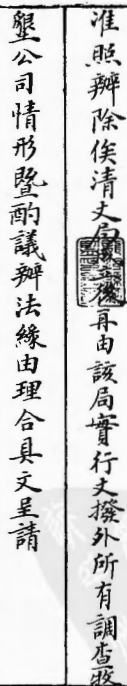 准照辦除俟清丈局成立後再由該局實行丈撥外所有調查牧
墾公司情形暨酌議辦法緣由理合具文呈請